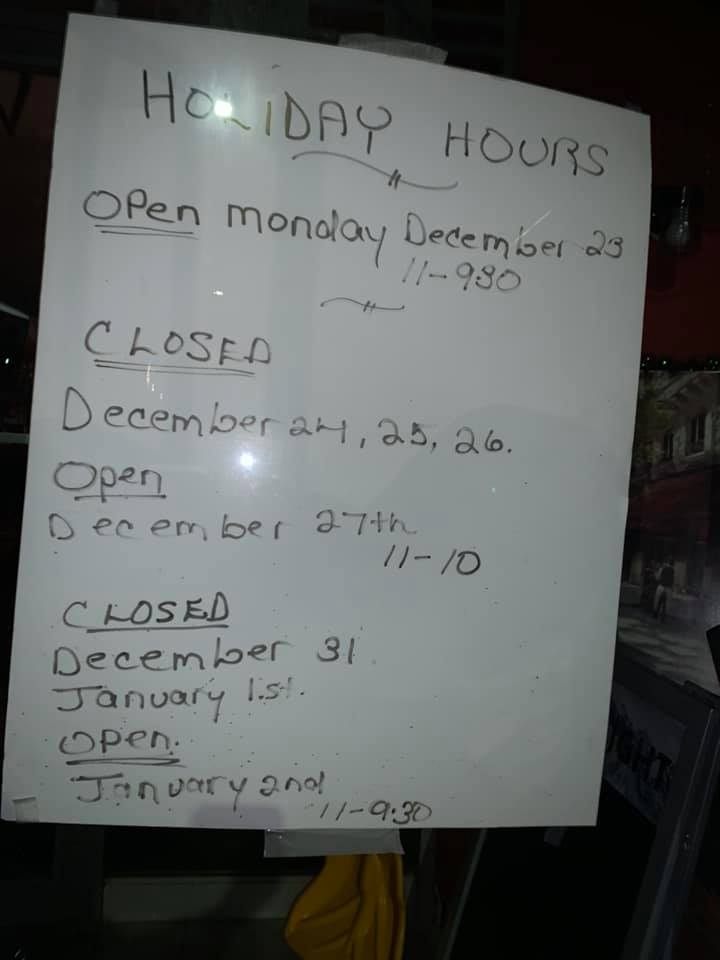 HOLIDAY HOURS
Open monday December 23
11-930
CLOSED
December 24, 25, 26.
Open
December 27th
11-10
CLOSED
December 31
January 1.st.
Open.
January 2nd
11-9:30